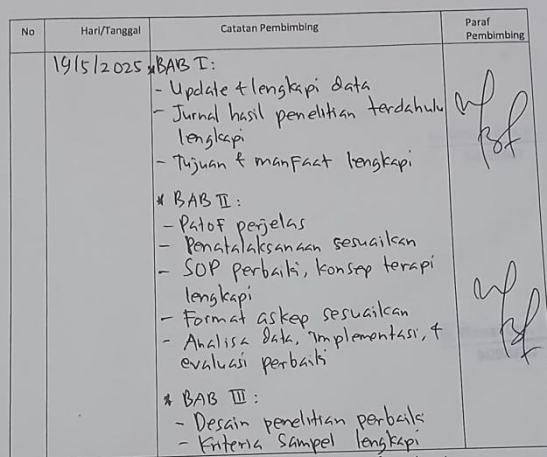 No Hari/Tanggal Catatan Pembimbing Paraf Pembimbing
19/5/2025 * BAB I :
- Update & lengkapi data
- Jurnal hasil penelitian terdahulu
lengkapi
- Tujuan & manfaat lengkapi
* BAB II :
- Patof perjelas
- Penatalaksanaan sesuaikan
- SOP perbaiki, konsep terapi
lengkapi
- Format askep sesuaikan
- Analisa data, implementasi, &
evaluasi perbaiki
* BAB III :
- Desain penelitian perbaiki
- Kriteria sampel lengkapi